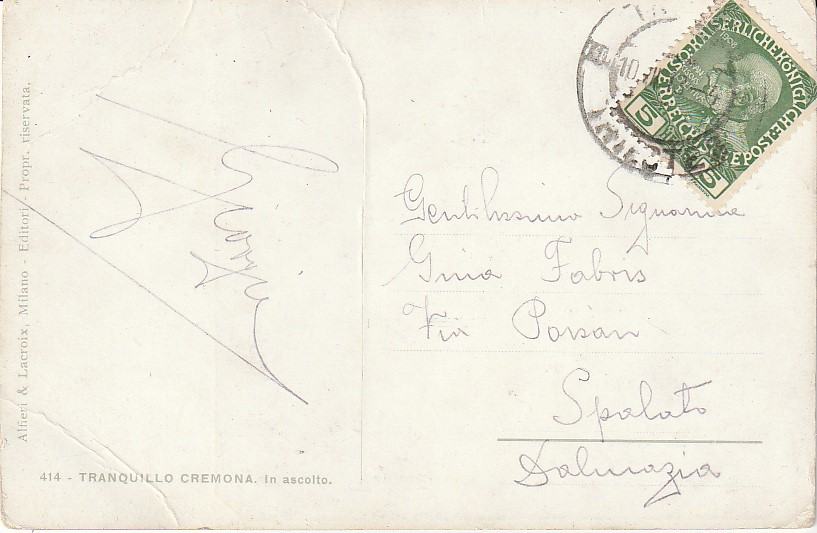 Alfieri & Lacroix, Milano - Editori - Propr. riservata.
414 - TRANQUILLO CREMONA. In ascolto.
KAISERLICHE KÖNIGLICHE
ÖSTERREICHISCHE POST
1908
5 5
10
Gentilissima Signorina
Gina Fabris
Via
Spalato
Dalmazia